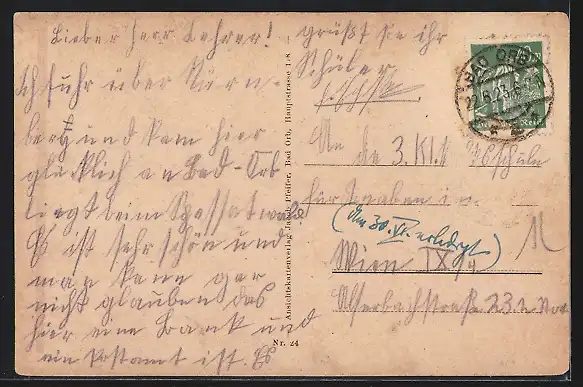 Lieber Herr Lehrer!
Ich fuhr über Nürn-
berg und kam hier
glücklich an Bad-Orb
liegt beim Spessatwald
Es ist sehr schön und
man kann gar
nicht glauben das
hier eine Bank und
ein Postamt ist. Es
grüßt sie ihr
Schüler
An die 3. Kl.
für Knaben in
(Am 30. VI. erledigt)
Wien IX/4
23.
BAD ORB
22.6.23.
Ansichtskartenverlag Pfeifer, Bad Orb, Hauptstrasse 1-8
Nr. 24